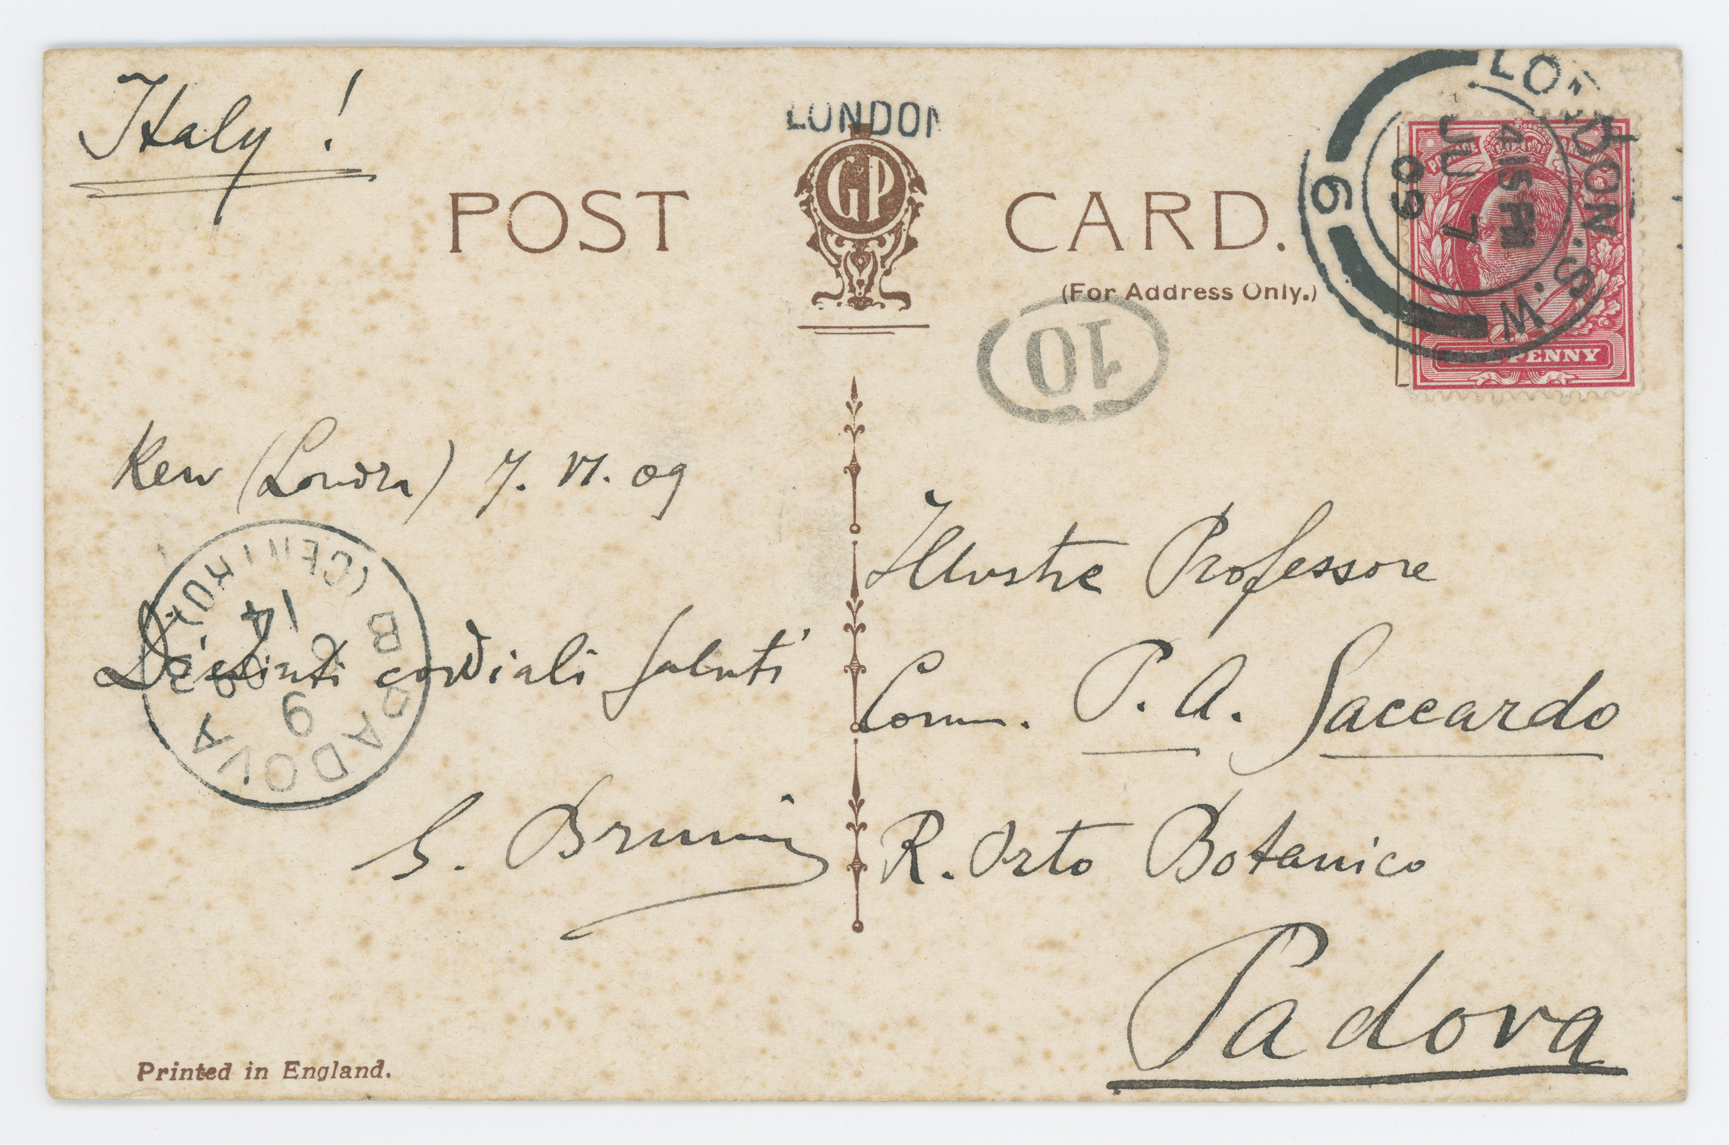 Italy!
LONDON
POST CARD.
GP
(For Address Only.)
LONDON.S.W
6
4 15 PM
JU 7
09
PENNY
10
Kew (Londra) 7. VI. 09
Distinti cordiali saluti
G. Brunin
PADOVA
14
9
Illustre Professore
Comm. P. A. Saccardo
R. Orto Botanico
Padova
Printed in England.